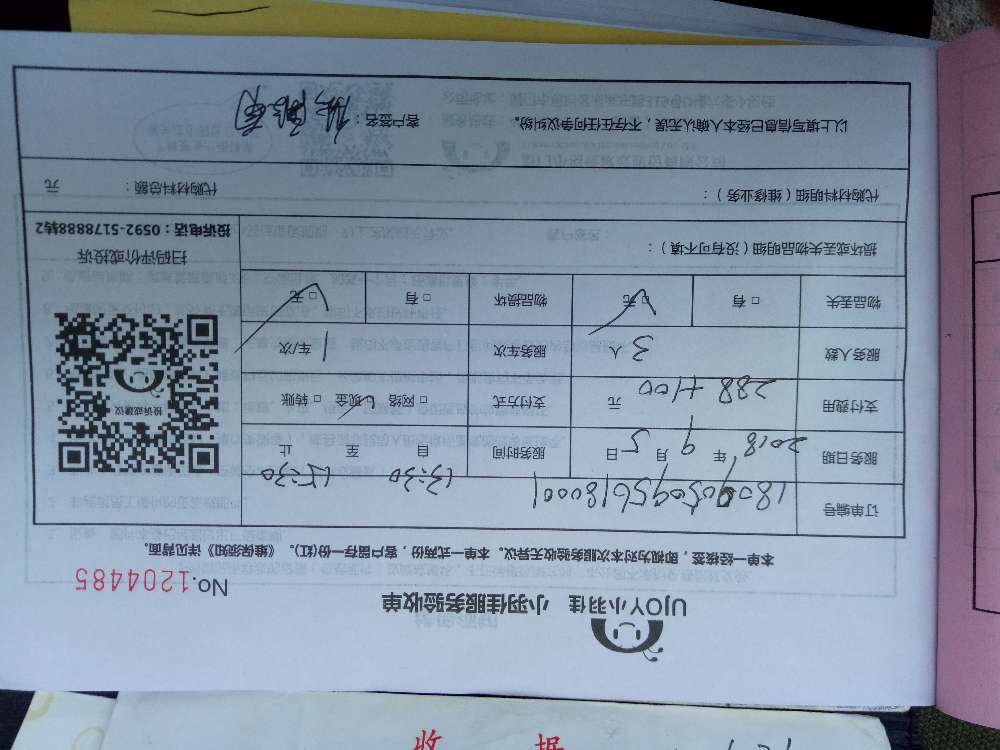 UJOY小羽佳 小羽佳服务验收单
No.1204485
本单一经核签，即视为对本次服务验收无异议。本单一式两份，客户留存一份(红)。《维保须知》详见背面。
订单编号
服务日期 2018年9月5日 服务时间 自13:30至15:30止
支付费用 288+100元 支付方式 □网络 □现金 □转账
服务人数 3人 服务车次 1车/次
物品丢失 □有 □无 物品损坏 □有 □无
投诉或建议
扫码评价或投诉
投诉电话：0592-5178888转2
损坏或丢失物品明细（没有可不填）：
代购材料明细（维修业务）： 代购材料总额： 元
以上填写信息已经本人确认无误，不存在任何争议纠纷。 客户签名：
收 据